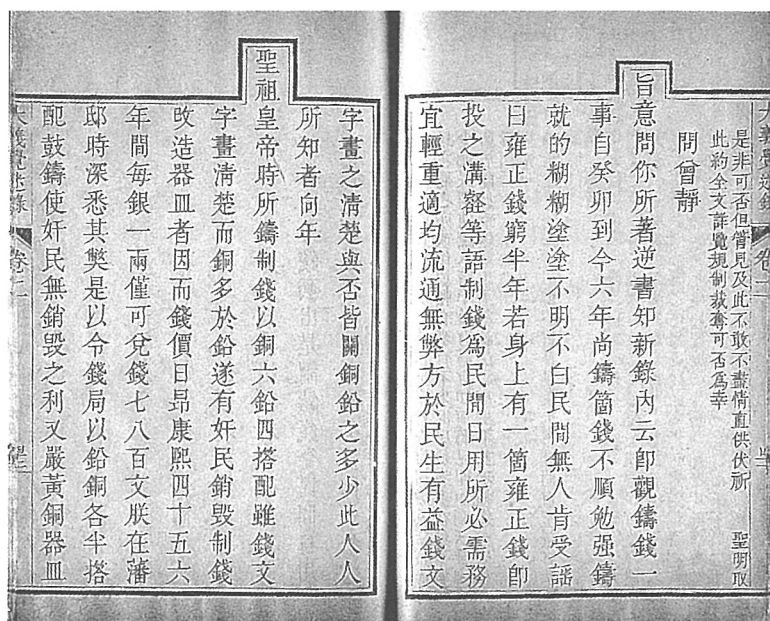 大義覺迷錄 卷二
是非可否但管見及此不敢不盡情直供伏祈 聖明取
此約全文詳覽規制裁奪可否為幸
問曾靜
旨意問你所著逆書知新錄內云卽觀鑄錢一
事自癸卯到今六年尚鑄箇錢不順勉强鑄
就的糊糊塗塗不明不白民間無人肯受謡
曰雍正錢窮半年若身上有一箇雍正錢卽
投之溝壑等語制錢爲民間日用所必需務
宜輕重適均流通無弊方於民生有益錢文
字畫之清楚與否皆關銅鉛之多少此人人
所知者向年
聖祖皇帝時所鑄制錢以銅六鉛四搭配雖錢文
字畫清楚而銅多於鉛遂有奸民銷毀制錢
改造器皿者因而錢價日昂康熙四十五六
年間每銀一兩僅可兌錢七八百文朕在藩
邸時深悉其獘是以令錢局以鉛銅各半搭
配鼓鑄使奸民無銷毀之利又嚴黃銅器皿
大義覺迷錄 卷二